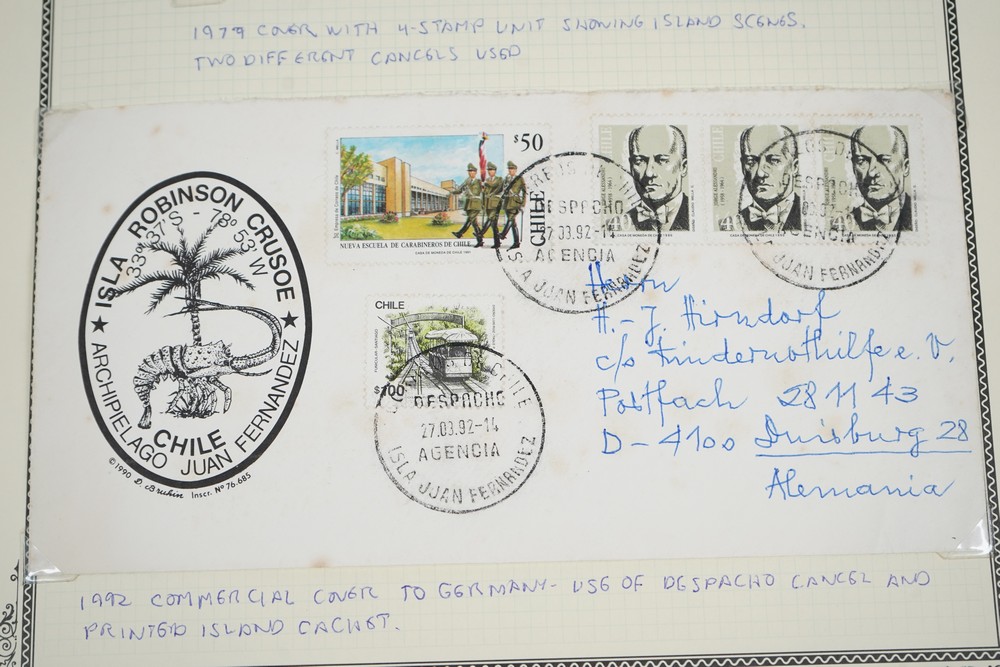 1979 COVER WITH 4-STAMP UNIT SHOWING ISLAND SCENES.
TWO DIFFERENT CANCELS USED
ISLA ROBINSON CRUSOE
33° 37'S - 78° 53' W
★ ARCHIPIELAGO JUAN FERNANDEZ ★
CHILE
©1990 D. Bruhin Inscr. Nº 76.685
$50
CHILE
NUEVA ESCUELA DE CARABINEROS DE CHILE
CASA DE MONEDA DE CHILE
CHILE
CHILE
DESPACHO
27.03.92-14
AGENCIA
ISLA JUAN FERNANDEZ
DESPACHO
AGENCIA
JUAN FERNANDEZ
CHILE
$100
CHILE
DESPACHO
27.03.92-14
AGENCIA
ISLA JUAN FERNANDEZ
Herrn
H.-J. Hirndorf
c/o Kindernothilfe e.V.
Postfach 28 11 43
D-4100 Duisburg 28
Alemania
1992 COMMERCIAL COVER TO GERMANY- USE OF DESPACHO CANCEL AND
PRINTED ISLAND CACHET.